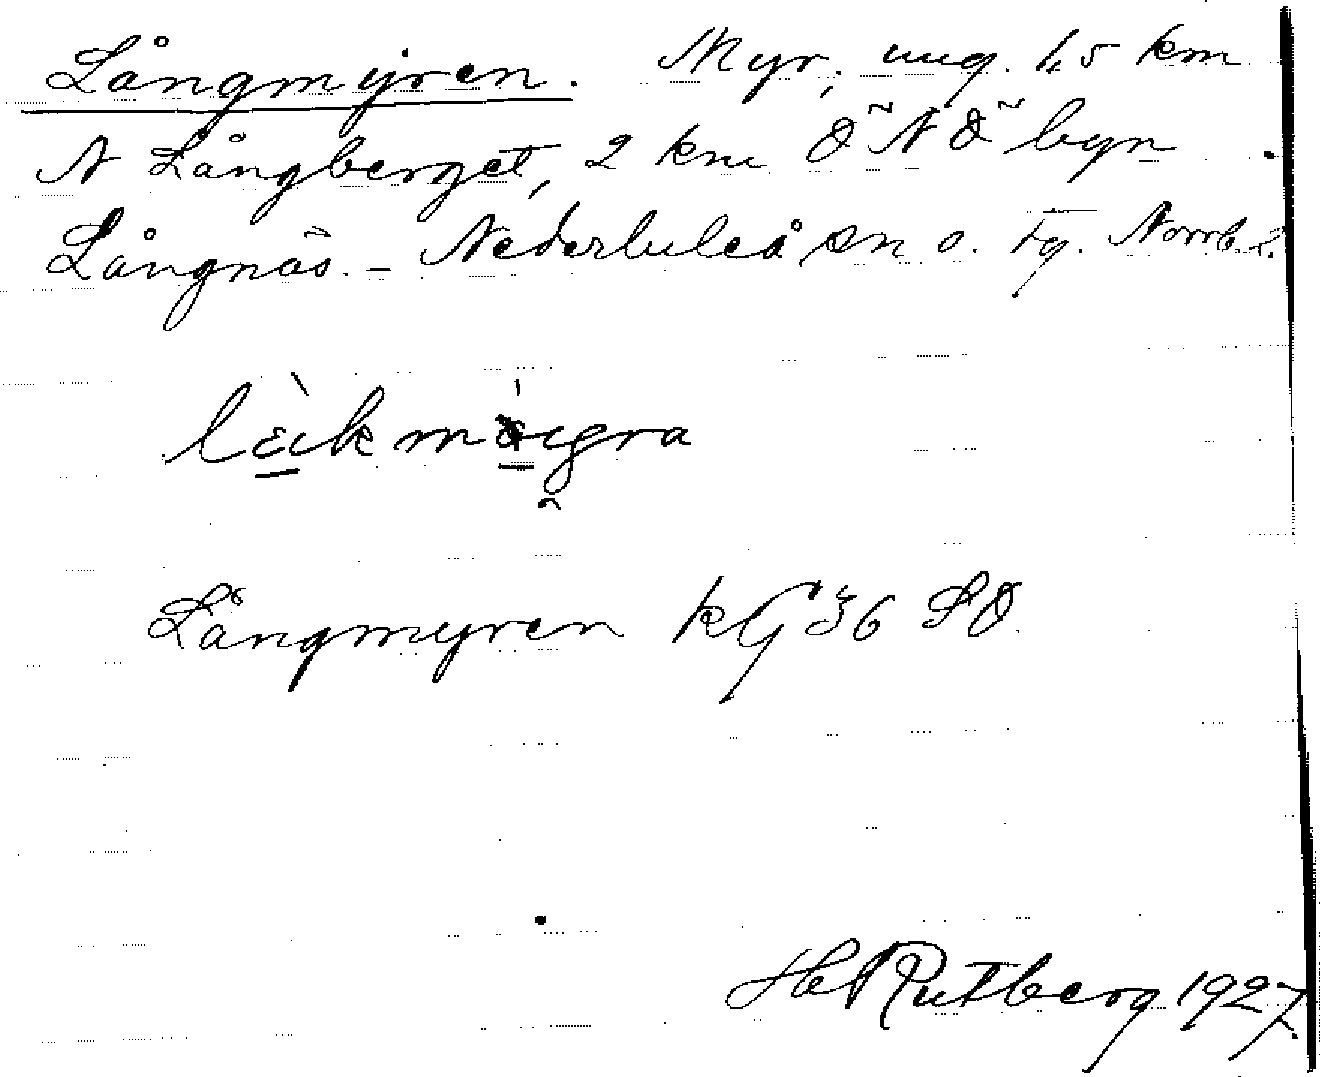 Långmyren. Myr, ung. 1,5 km
N Långberget, 2 km ÖNÖ byn
Långnäs. – Nederluleå sn o. tg. Norrb. l.
Långmyren kG 36 SO
H Rutberg 1927.